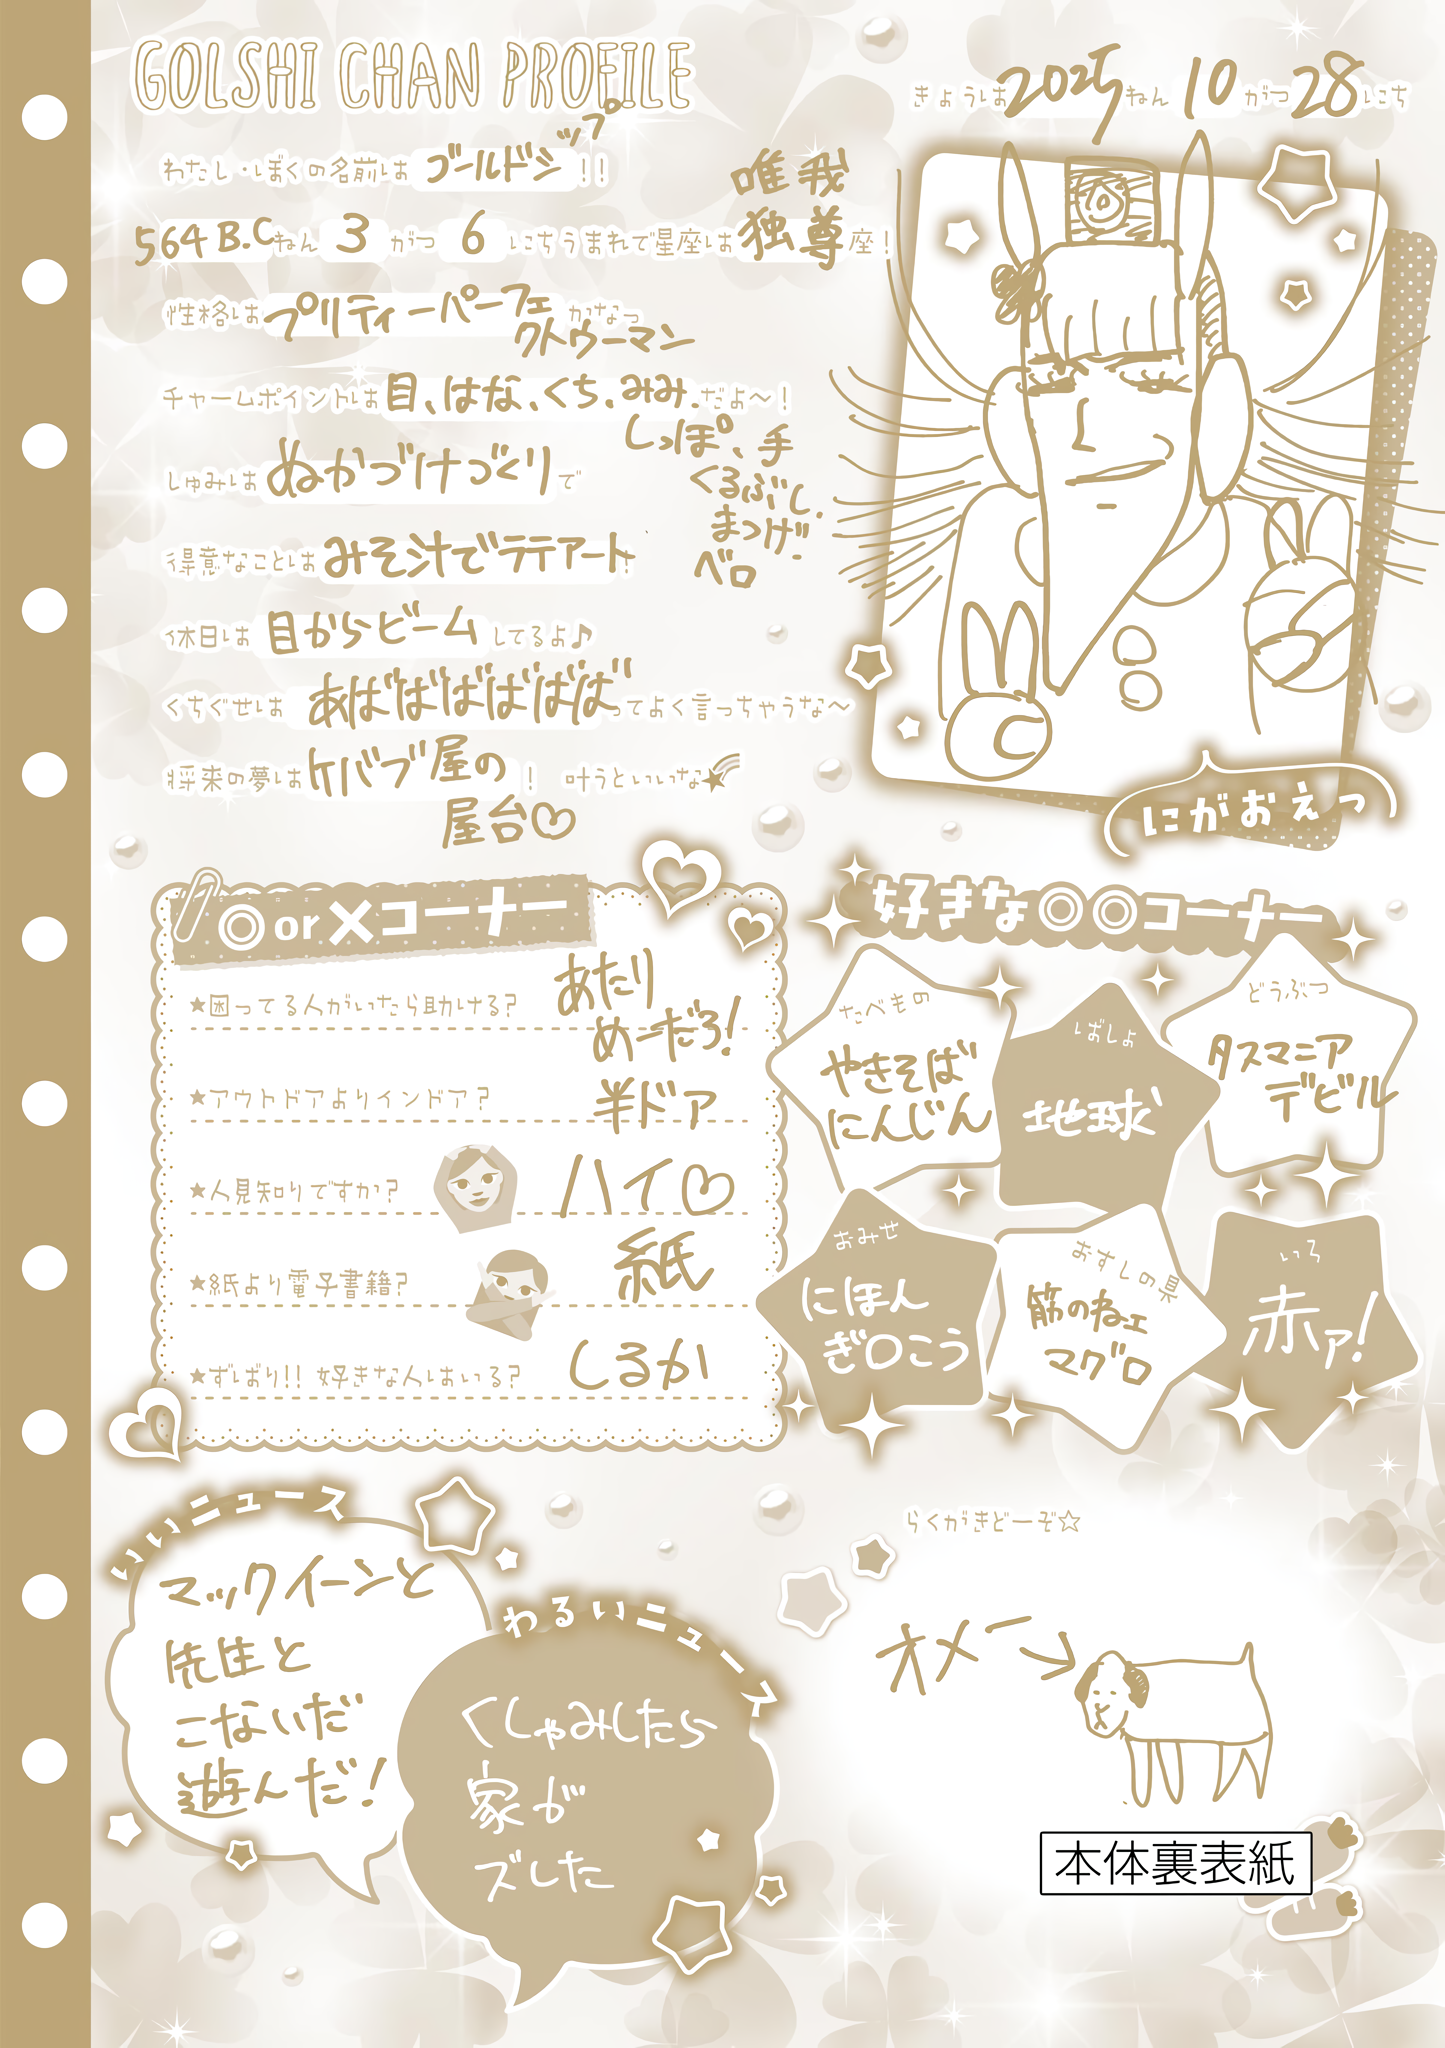 GOLSHI CHAN PROFILE
きょうは2025ねん10がつ28にち
わたし・ぼくの名前はゴールドシップ!!
564B.Cねん3がつ6にちうまれで星座は唯我独尊座!
性格はプリティーパーフェクトウーマンかなっ
チャームポイントは目、はな、くち、みみ、しっぽ、手くるぶし、まつげ、ベロだよ〜!
しゅみはぬかづけづくりで
得意なことはみそ汁でラテアート!
休日は目からビームしてるよ♪
くちぐせはあばばばばばばってよく言っちゃうな〜
将来の夢はケバブ屋の屋台♡! 叶うといいな
にがおえっ
◎or×コーナー
★困ってる人がいたら助ける?
あたりめーだろ!
★アウトドアよりインドア?
半ドア
★人見知りですか?
ハイ♡
★紙より電子書籍?
紙
★ずばり!! 好きな人はいる?
しるか
好きな◎◎コーナー
たべもの
やきそば
にんじん
ばしょ
地球
どうぶつ
タスマニア
デビル
おみせ
にほん
ぎ口こう
おすしの具
筋のねェ
マグロ
いろ
赤ァ!
いいニュース
マックイーンと
先生と
こないだ
遊んだ!
わるいニュース
くしゃみしたら
家が
ズレた
らくがきどーぞ☆
オメー→
本体裏表紙